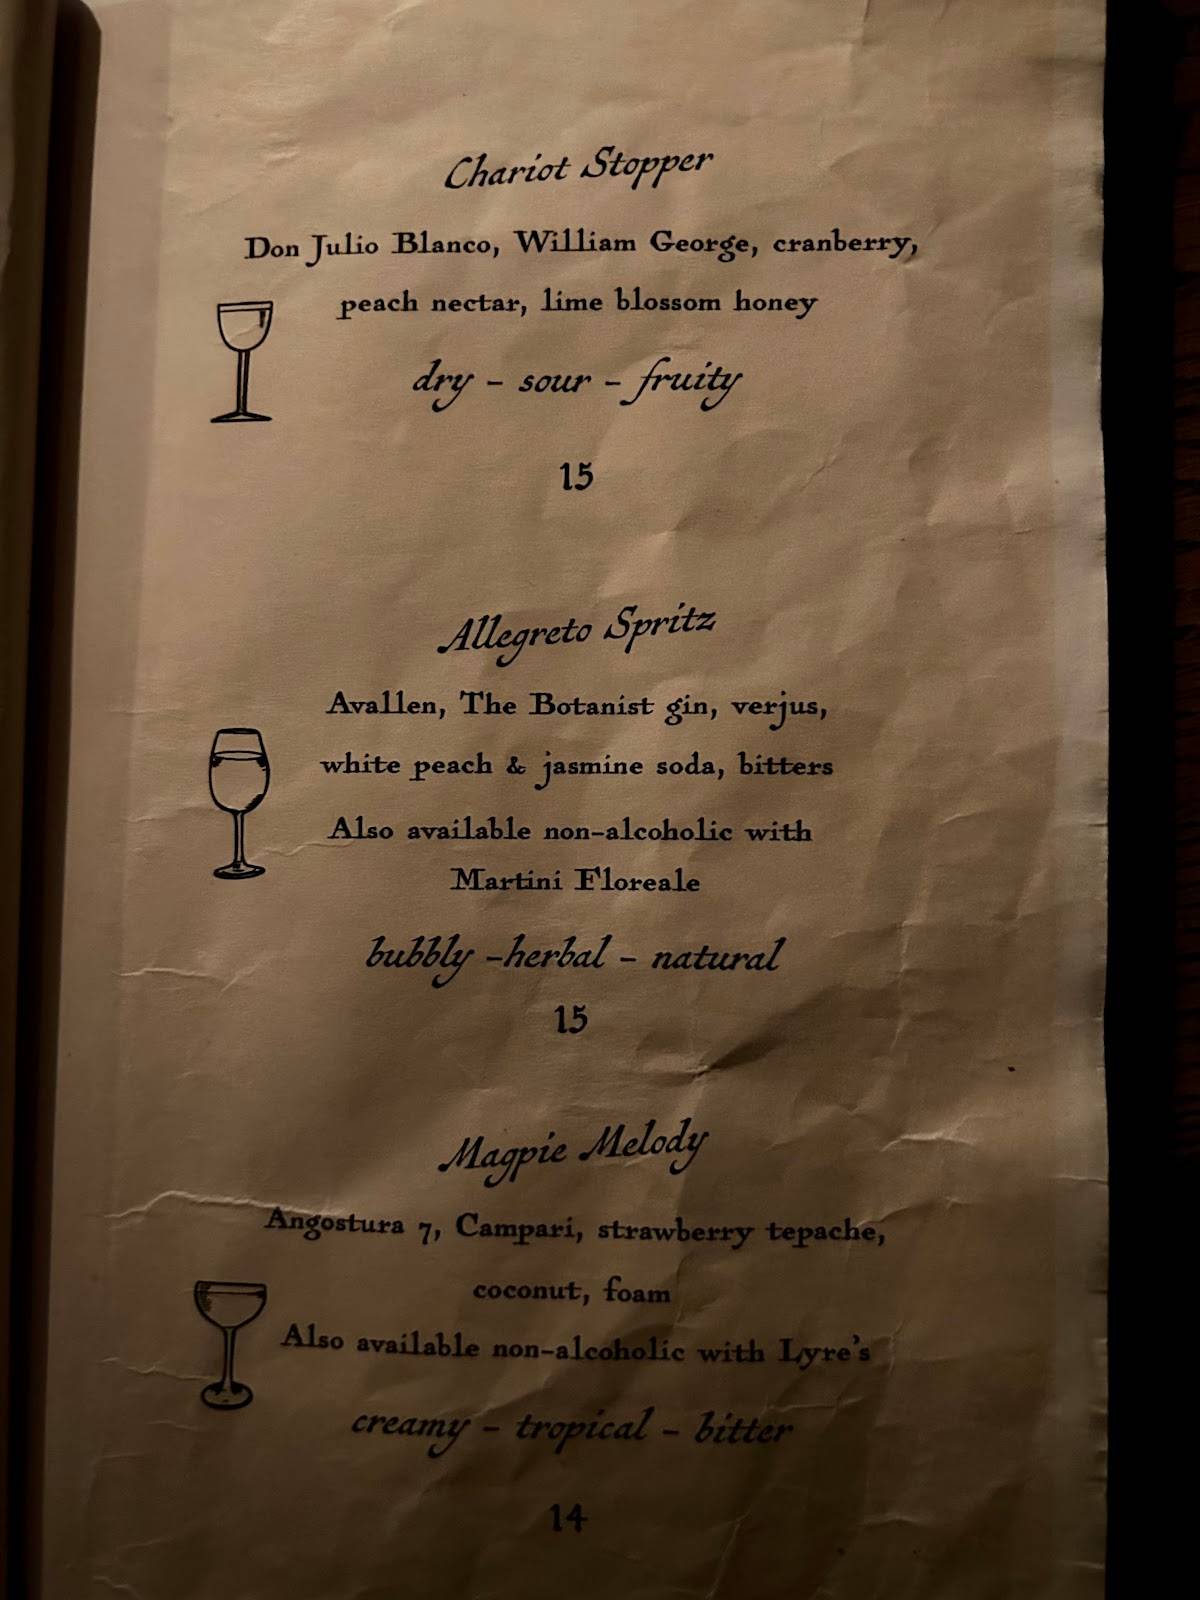 Chariot Stopper
Don Julio Blanco, William George, cranberry,
peach nectar, lime blossom honey
dry - sour - fruity
15
Allegreto Spritz
Avallen, The Botanist gin, verjus,
white peach & jasmine soda, bitters
Also available non-alcoholic with
Martini Floreale
bubbly -herbal - natural
15
Magpie Melody
Angostura 7, Campari, strawberry tepache,
coconut, foam
Also available non-alcoholic with Lyre's
creamy - tropical - bitter
14